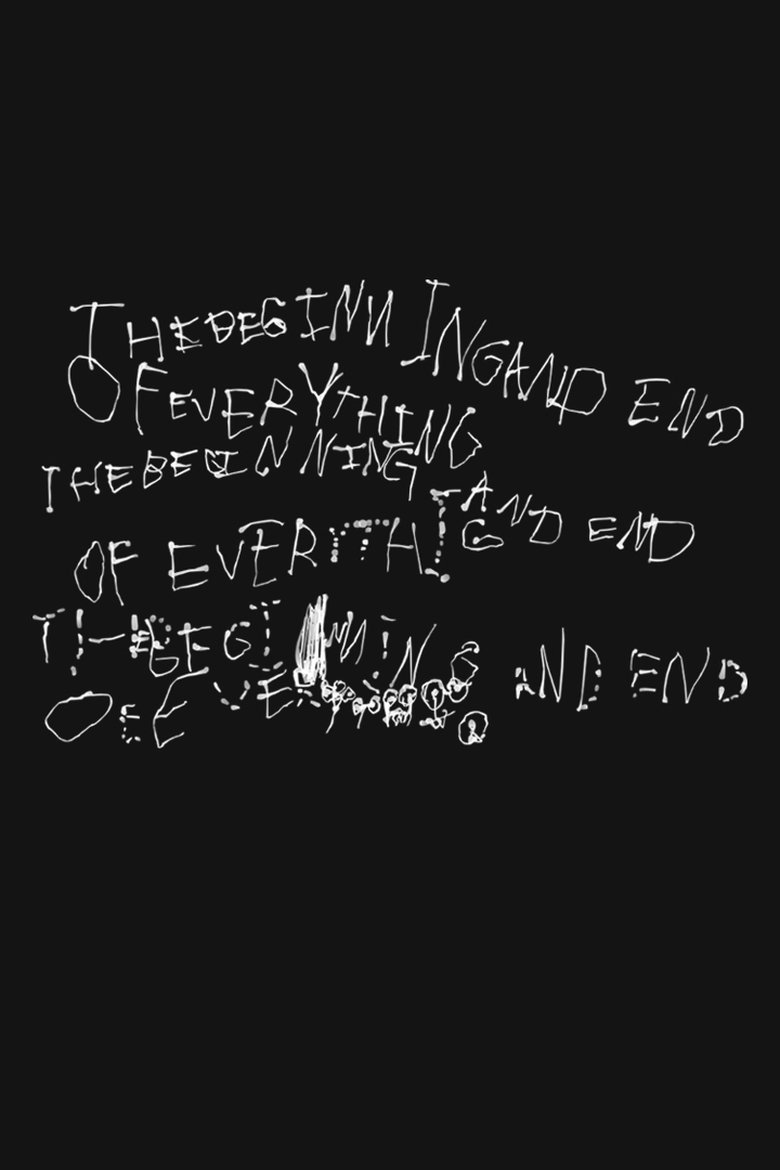 THE BEGINNING AND END
OF EVERYTHING
THE BEGINNING AND END
OF EVERYTHIG
THE BEGINNING AND END
OF EVER